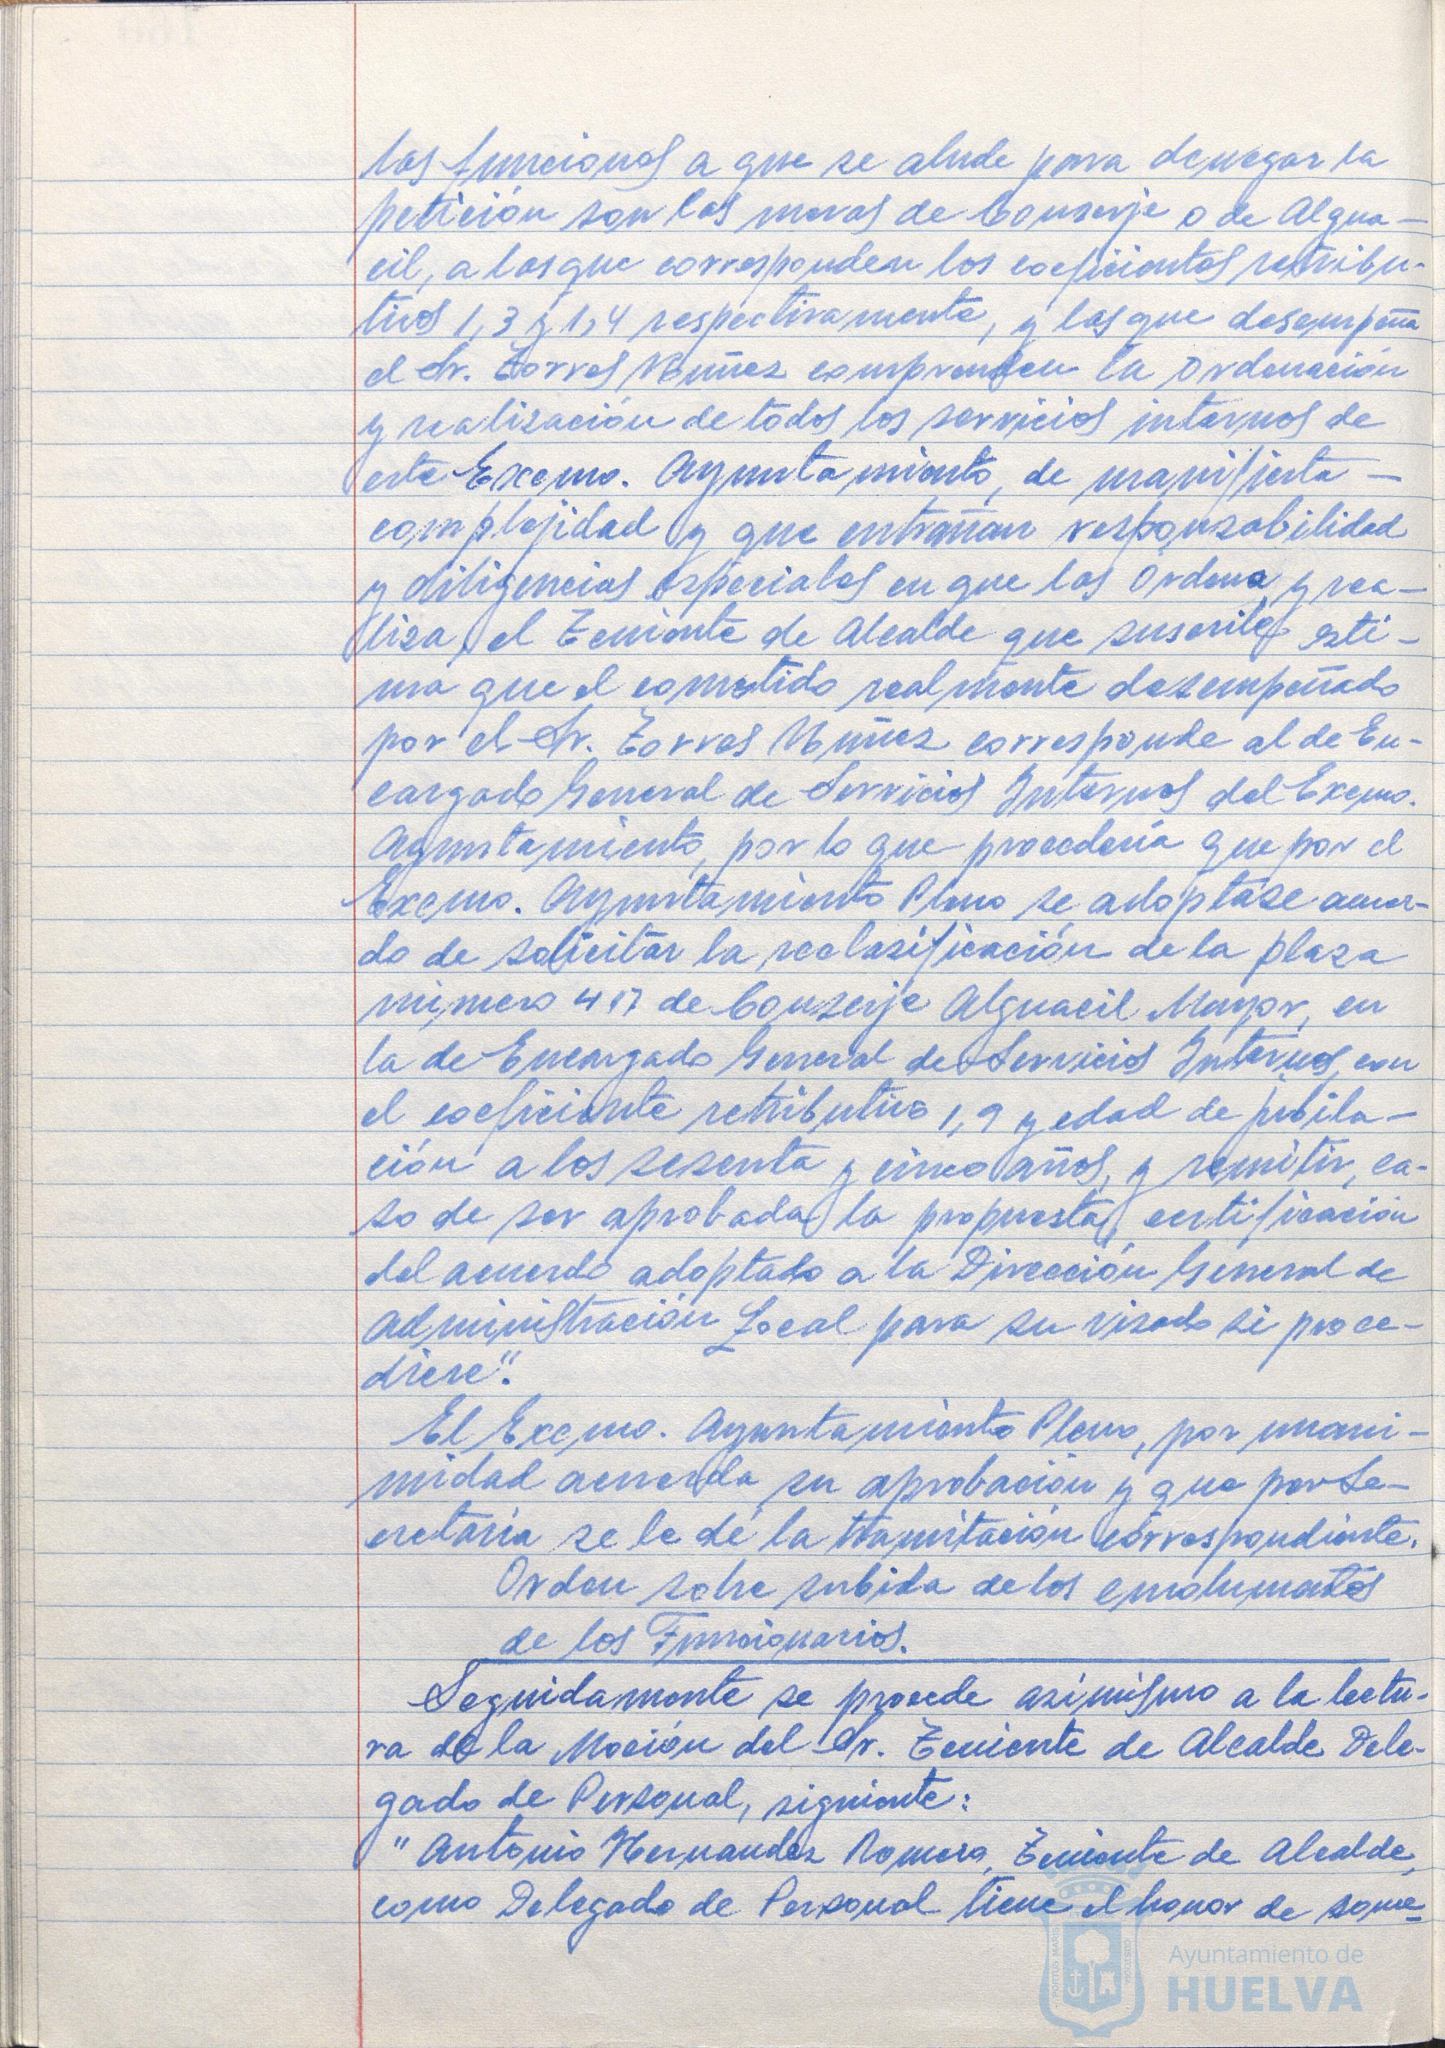 las funciones a que se alude para denegar la
petición son las meras de Conserje o de Algua-
cil, a las que corresponden los coeficientes retribu-
tivos 1,3 y 1,4 respectivamente, y las que desempeña
el Sr. Torres Núñez comprenden la ordenación
y realización de todos los servicios internos de
este Excmo. Ayuntamiento, de manifiesta -
complejidad y que entrañan responsabilidad
y diligencias especiales en que las ordena y rea-
liza, el Teniente de Alcalde que suscribe esti-
ma que el cometido realmente desempeñado
por el Sr. Torres Núñez corresponde al de En-
cargado General de Servicios Internos del Excmo.
Ayuntamiento, por lo que procedería que por el
Excmo. Ayuntamiento Pleno se adoptase acuer-
do de solicitar la reclasificación de la plaza
número 417 de Conserje Alguacil Mayor, en
la de Encargado General de Servicios Internos, con
el coeficiente retributivo 1,9 y edad de jubila-
ción a los sesenta y cinco años, y remitir, ca-
so de ser aprobada la propuesta, certificación
del acuerdo adoptado a la Dirección General de
Administración Local para su visado si proce-
diere".
El Excmo. Ayuntamiento Pleno, por unani-
midad acuerda su aprobación y que por Se-
cretaría se le dé la tramitación correspondiente.
Orden sobre subida de los emolumentos
de los Funcionarios.
Seguidamente se procede asimismo a la lectu-
ra de la Moción del Sr. Teniente de Alcalde Dele-
gado de Personal, siguiente:
"Antonio Hernandez Romero, Teniente de Alcalde,
como Delegado de Personal tiene el honor de some-
Ayuntamiento de
HUELVA